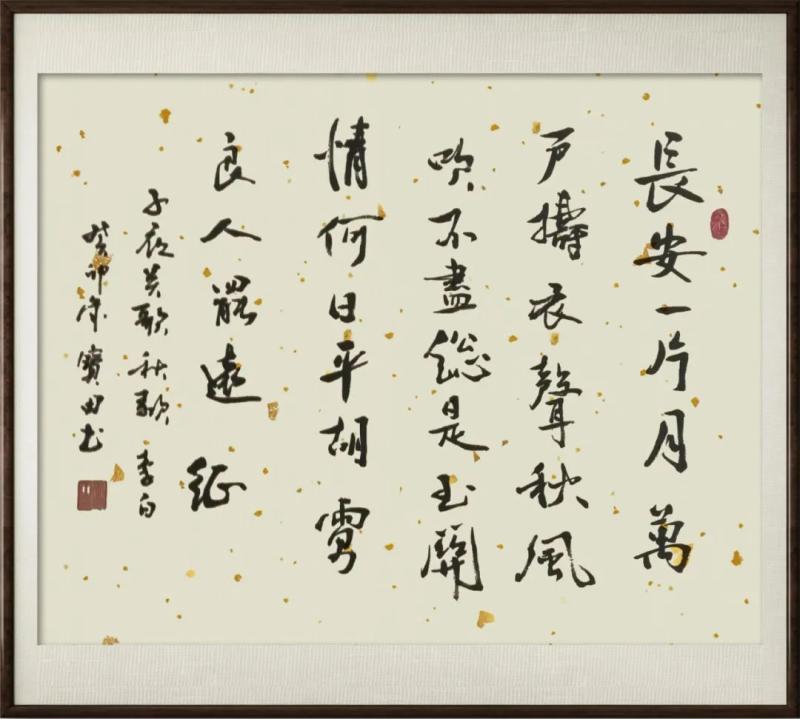 長安一片月萬
戶擣衣聲秋風
吹不盡總是玉關
情何日平胡虜
良人罷遠征
子夜吳歌秋歌 李白
癸卯宋寶田書